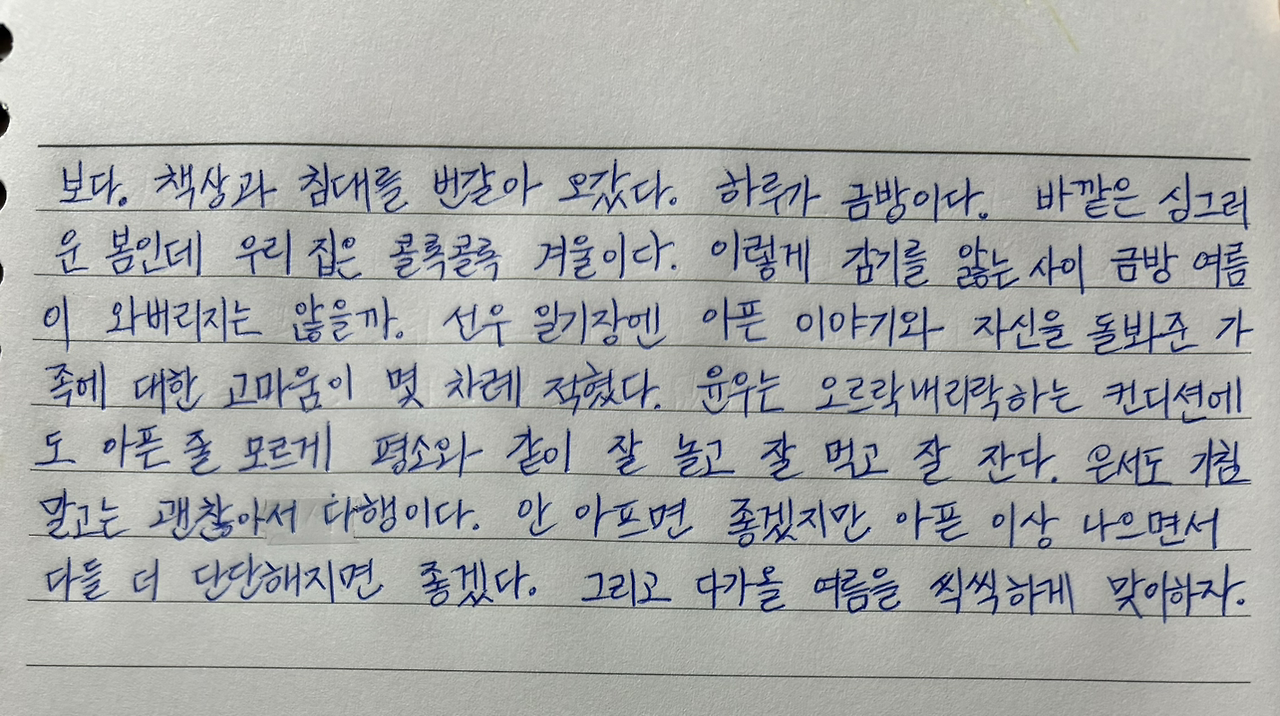 보다. 책상과 침대를 번갈아 오갔다. 하루가 금방이다. 바깥은 싱그러
운 봄인데 우리 집은 콜록콜록 겨울이다. 이렇게 감기를 앓는 사이 금방 여름
이 와버리지는 않을까. 선우 일기장엔 아픈 이야기와 자신을 돌봐준 가
족에 대한 고마움이 몇 차례 적혔다. 윤우는 오르락내리락하는 컨디션에
도 아픈 줄 모르게 평소와 같이 잘 놀고 잘 먹고 잘 잔다. 은서도 기침
말고는 괜찮아서 다행이다. 안 아프면 좋겠지만 아픈 이상 나으면서
다들 더 단단해지면 좋겠다. 그리고 다가올 여름을 씩씩하게 맞이하자.